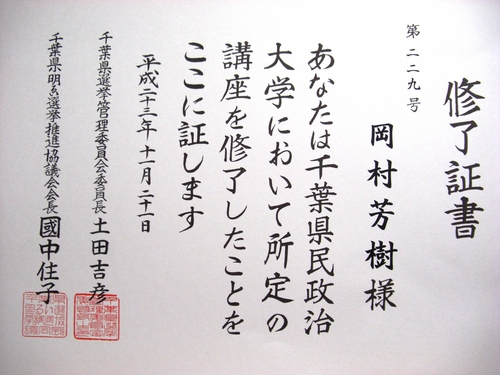 修了証書
第二二九号
岡村芳樹様
あなたは千葉県民政治
大学において所定の
講座を修了したことを
ここに証します
平成二十三年十一月二十一日
千葉県選挙管理委員会委員長 土田吉彦
千葉県明るい選挙推進協議会会長 國中住子